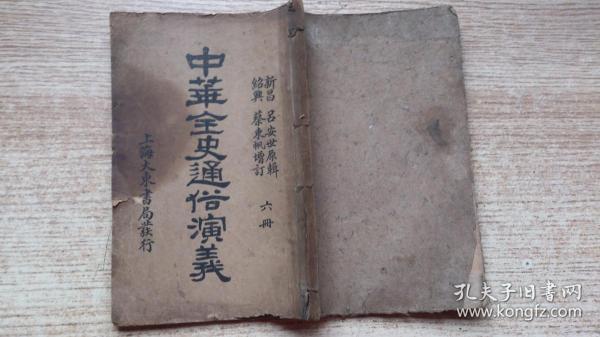 新昌 呂安世原輯
紹興 蔡東帆增訂 六冊
中華全史通俗演義
上海大東書局發行
孔夫子旧书网
www.kongfz.com